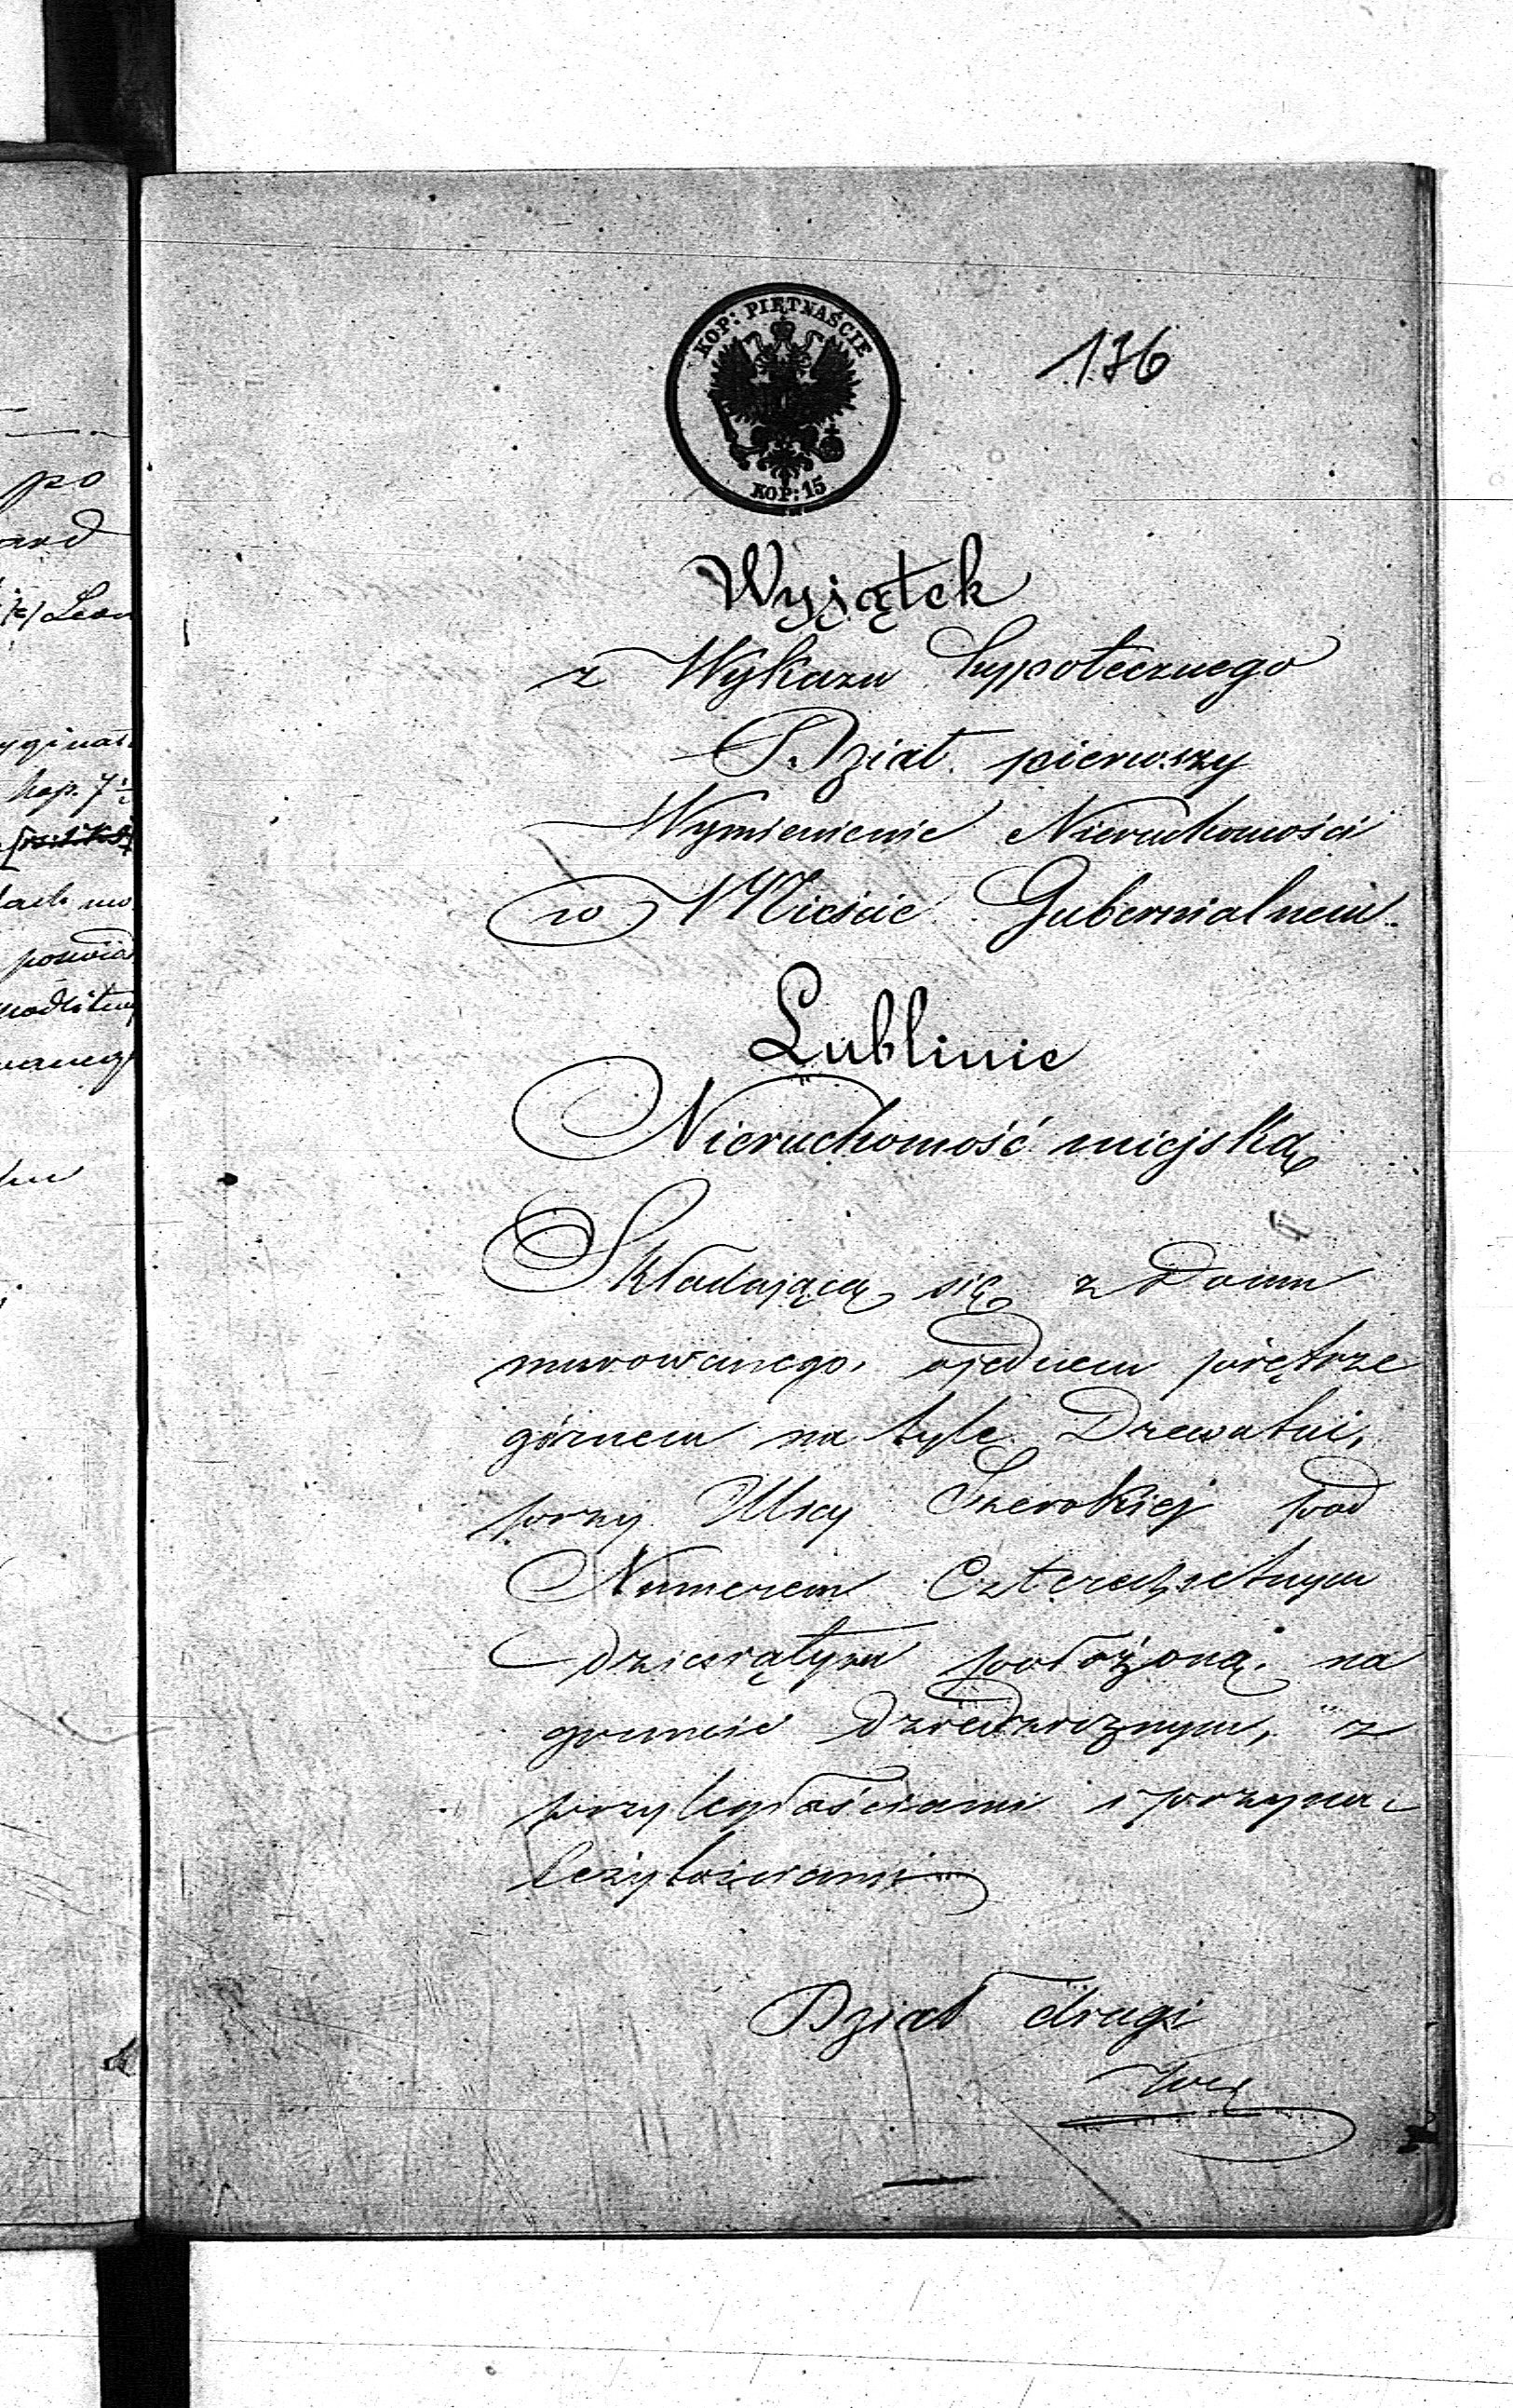 KOP: PIĘTNAŚCIE
KOP: 15
136
Wyjątek
z Wykazu hypotecznego
Dział pierwszy
Wymienienie Nieruchomości
w Mieście Gubernialnem
Lublinie
Nieruchomość miejską
Składającą się z Domu
murowanego, o jednem piętrze
górnem na tyle Drewutni,
przy Ulicy Szerokiej pod
Numerem Czterechsetnym
dziesiątym położoną, na
gruncie dziedzicznym, z
przyległościami i przyna-
leżytościami
Dział drugi
po
ard
Leon
yginal
kop. 7½
poświad